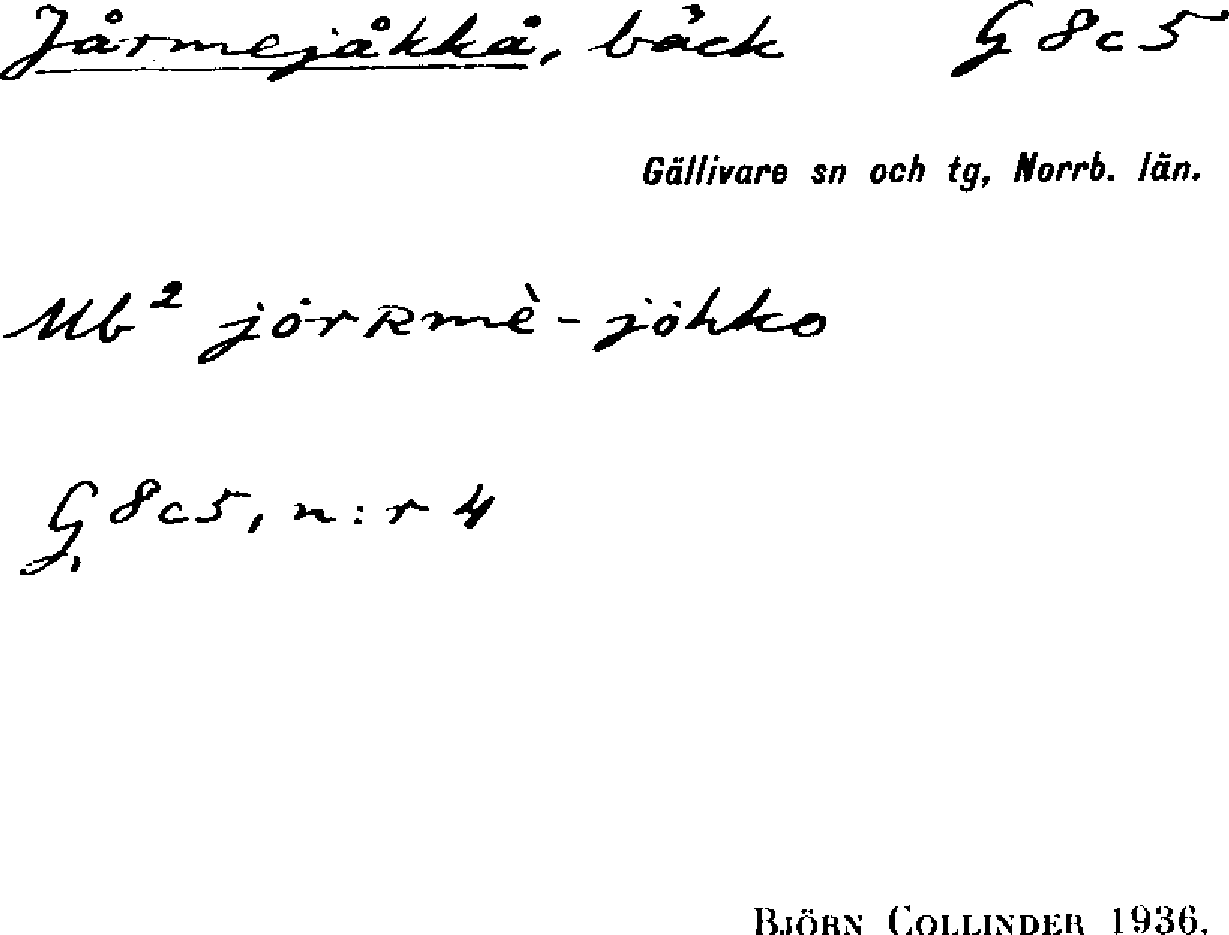 Jårmejåkkå, bäck G 8c5
Gällivare sn och tg, Norrb. län.
Ub² jȯrʀmè-jȯhko
G 8c5, n:r 4
BJÖRN COLLINDER 1936.